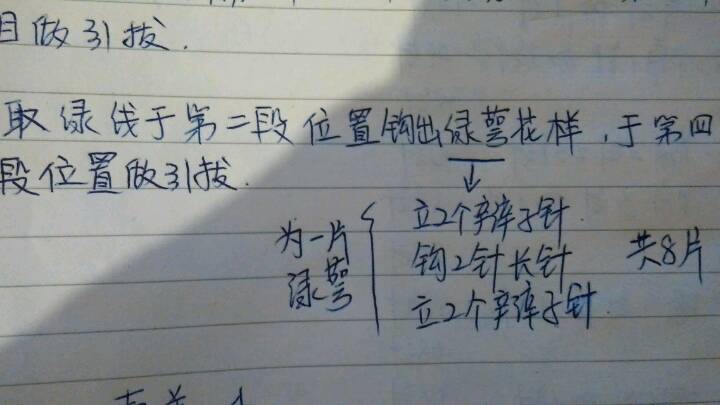 目做引拔.
取绿线于第二段位置钩出绿萼花样,于第四
段位置做引拔.
为一片
绿萼
立2个辫子针.
钩2针长针
立2个辫子针.
共8片